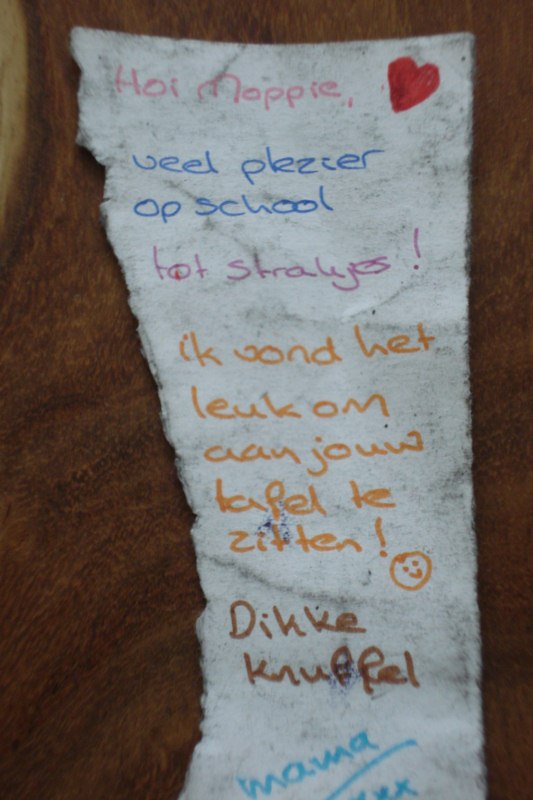 Hoi Moppie,
veel plezier
op school
tot strakjes!
ik vond het
leuk om
aan jouw
tafel te
zitten!
Dikke
knuffel
mama
xxx